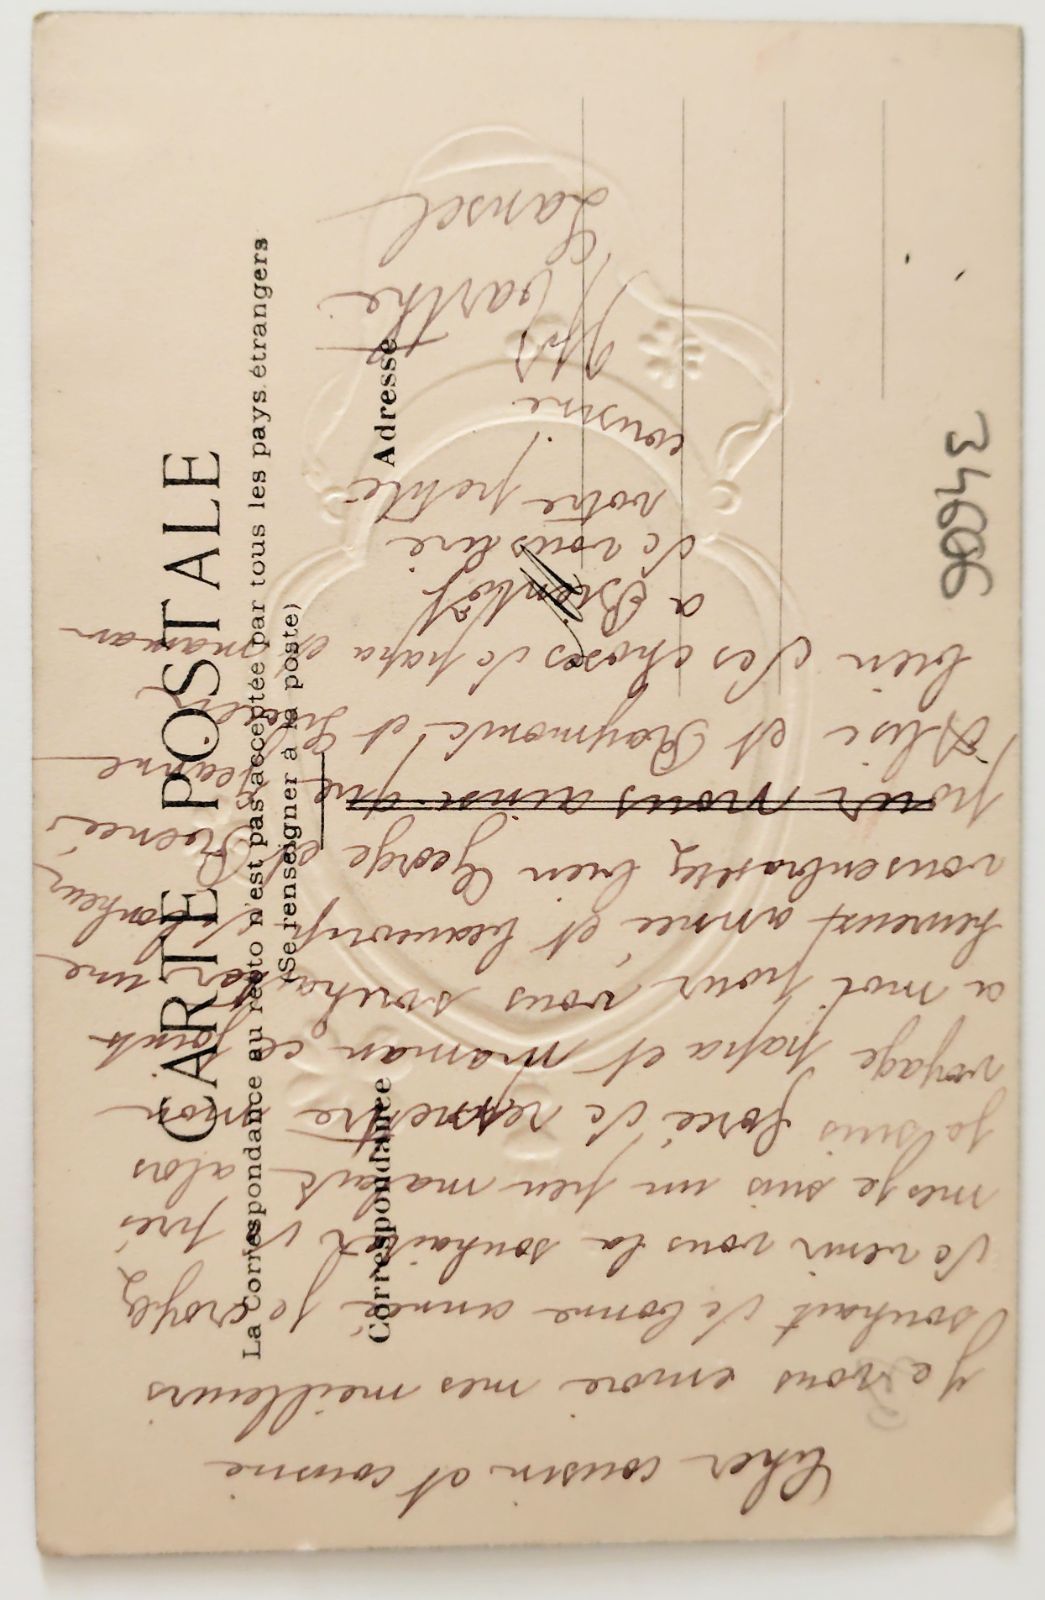 CARTE POSTALE
La Correspondance au recto n'est pas acceptée par tous les pays étrangers
(Se renseigner à la poste)
Correspondance
Adresse
Cher cousin et cousine
Je vous envoie mes meilleurs
souhait de bonne année je croyez
de venir vous la souhaitez de pré
mes je suis un peu malade alors
je suis forcé de remettre mon
voyage papa et maman ce joints
a moi pour vous souhaiter une
heureux année et beaucoup de bonheur
vous enbrasserez bien George et Reené
pour nous ainsi que Jeanne
Alise et Raymond et Lucien
bien des choses de papa et maman
a Bientôt
de vous lire
votre petite
cousine
Marthe
Lansel
34606